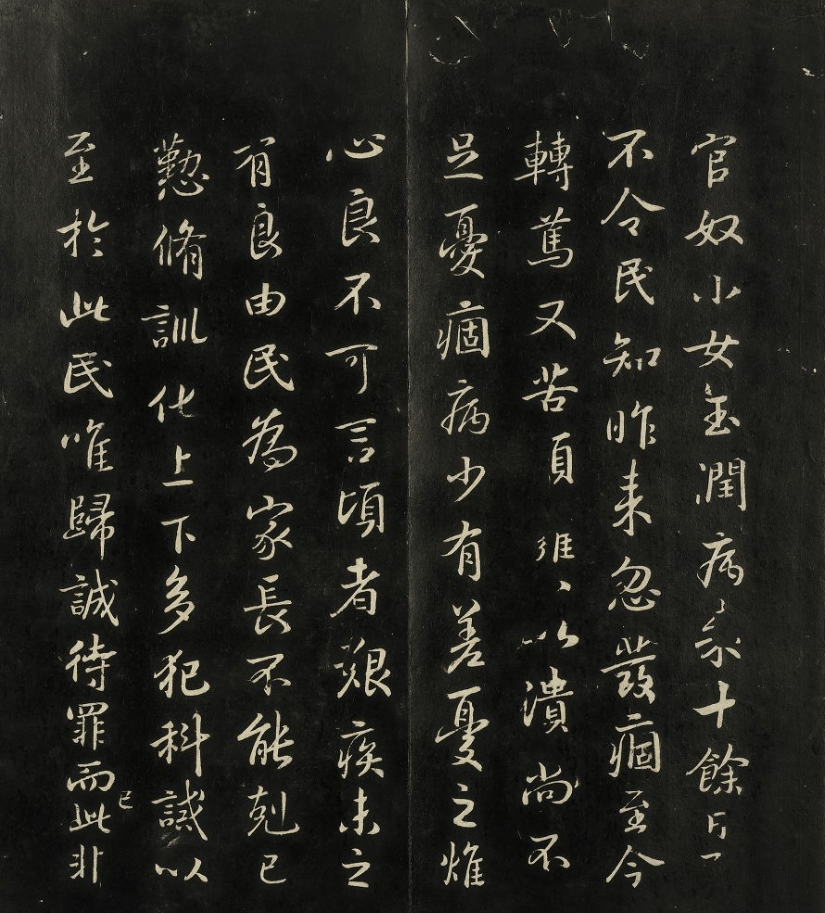 官奴小女玉潤病十餘
不令民知昨来忽發痼至今
轉篤又苦以潰尚不
足憂痼病少有差憂之燋
心良不可言頃者艱疾未之
有良由民為家長不能剋己
懃脩訓化上下多犯科誡以
至於此民唯歸誠待罪而此非
已